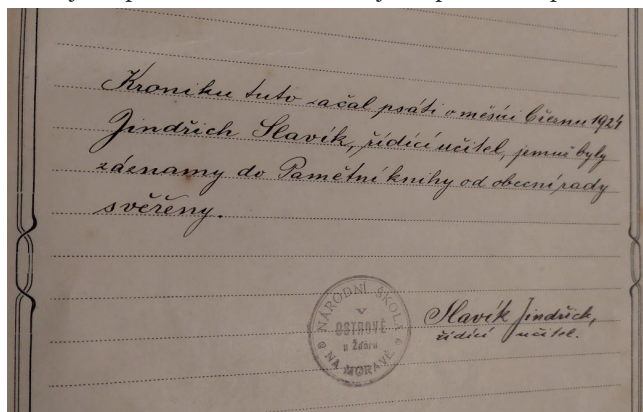 Kroniku tuto začal psáti v měsíci Červnu 1924
Jindřich Slavík, řídící učitel, jemuž byly
záznamy do Pamětní knihy od obecní rady
svěřeny.
NÁRODNÍ ŠKOLA
V
OSTROVĚ
u Žďáru
NA MORAVĚ
Slavík Jindřich,
řídící učitel.